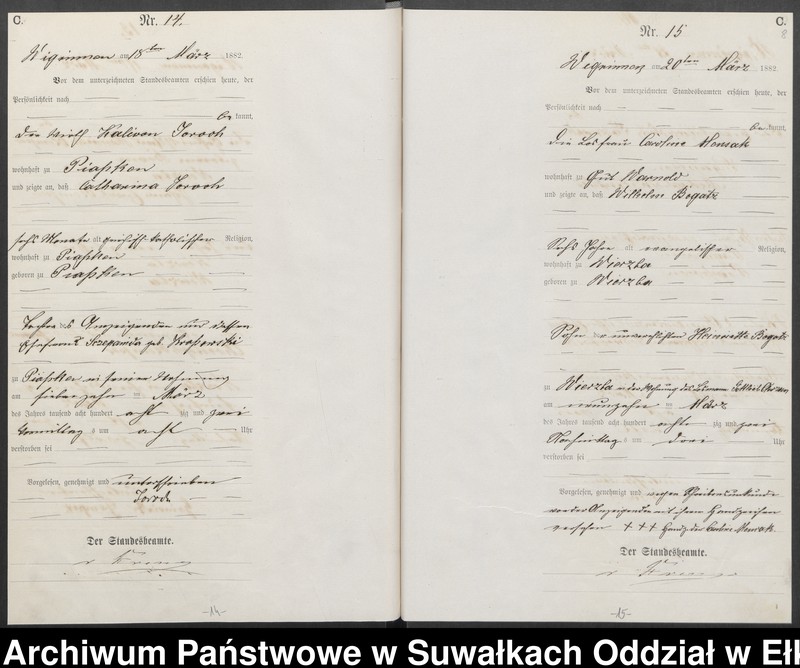 C.
Nr. 14.
am 18ten März 1882.
Vor dem unterzeichneten Standesbeamten erschien heute, der
Persönlichkeit nach
be kannt,
der Wirth
wohnhaft zu Piasken
und zeigte an, daß Catharina
sechs Monate alt griechisch katholischer Religion,
wohnhaft zu Piasken
geboren zu Piasken
Tochter des Anzeigenden und dessen
Ehefrau geb.
zu Piasken in seiner Wohnung
am siebenzehn ten März
des Jahres tausend acht hundert acht zig und zwei
Vormittag s um acht Uhr
verstorben sei
Vorgelesen, genehmigt und unterschrieben
Der Standesbeamte.
-14-
C.
8
Nr. 15
am 20ten März 1882
Vor dem unterzeichneten Standesbeamten erschien heute, der
Persönlichkeit nach
be kannt,
die Losfrau Caroline
wohnhaft zu Gut Warnold
und zeigte an, daß Wilhelm Bogatz
Sechs Jahre alt evangelischer Religion,
wohnhaft zu Wierzba
geboren zu Wierzba
Sohn der unverehelichten Henriette Bogatz
zu Wierzba in der Wohnung des Losmann Gottlieb
am neunzehn ten März
des Jahres tausend acht hundert achtzig und zwei
Nachmittag s um drei Uhr
verstorben sei
Vorgelesen, genehmigt und wegen Schreibensunkunde
von der Anzeigenden mit ihrem Handzeichen
versehen + + + Handz. der Caroline
Der Standesbeamte.
-15-
Archiwum Państwowe w Suwałkach Oddział w Eł